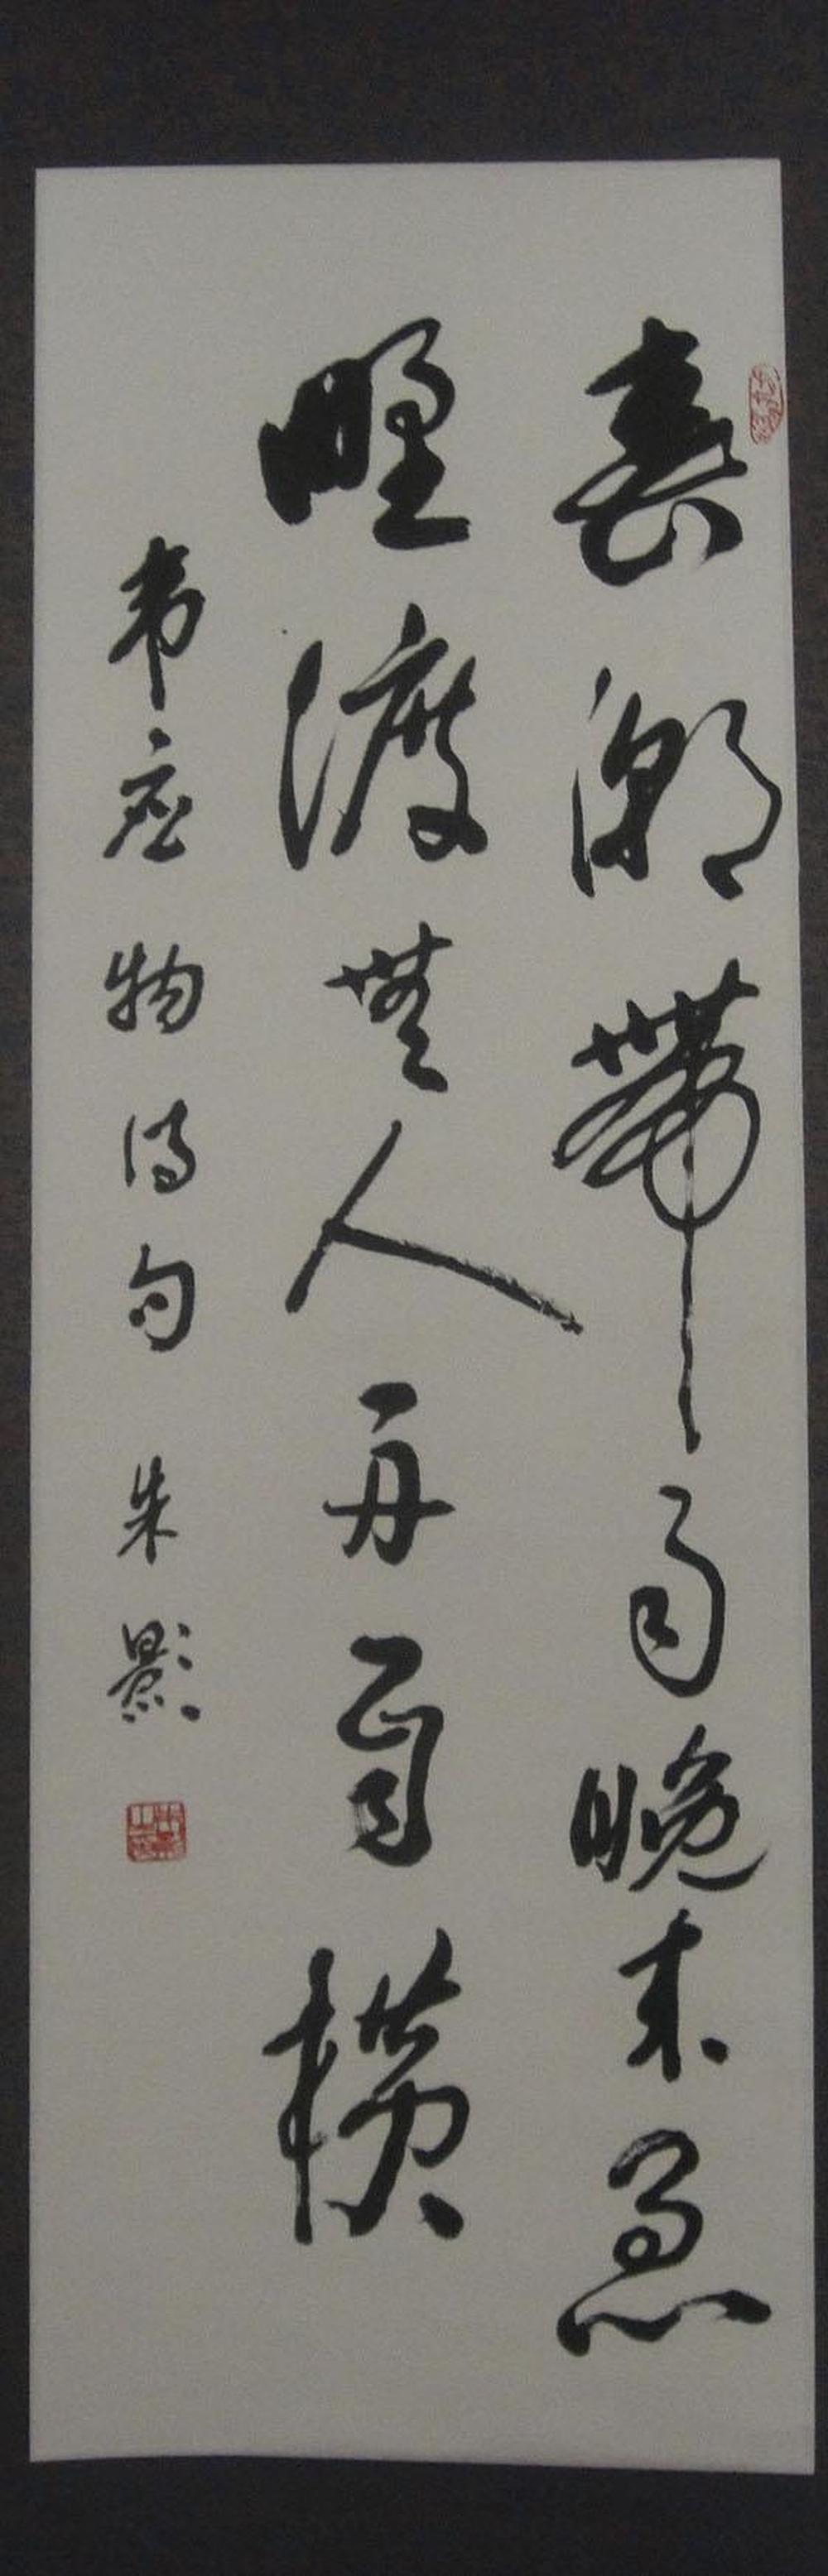 春潮帶雨晚来急
野渡無人舟自横
韦应物诗句 朱影